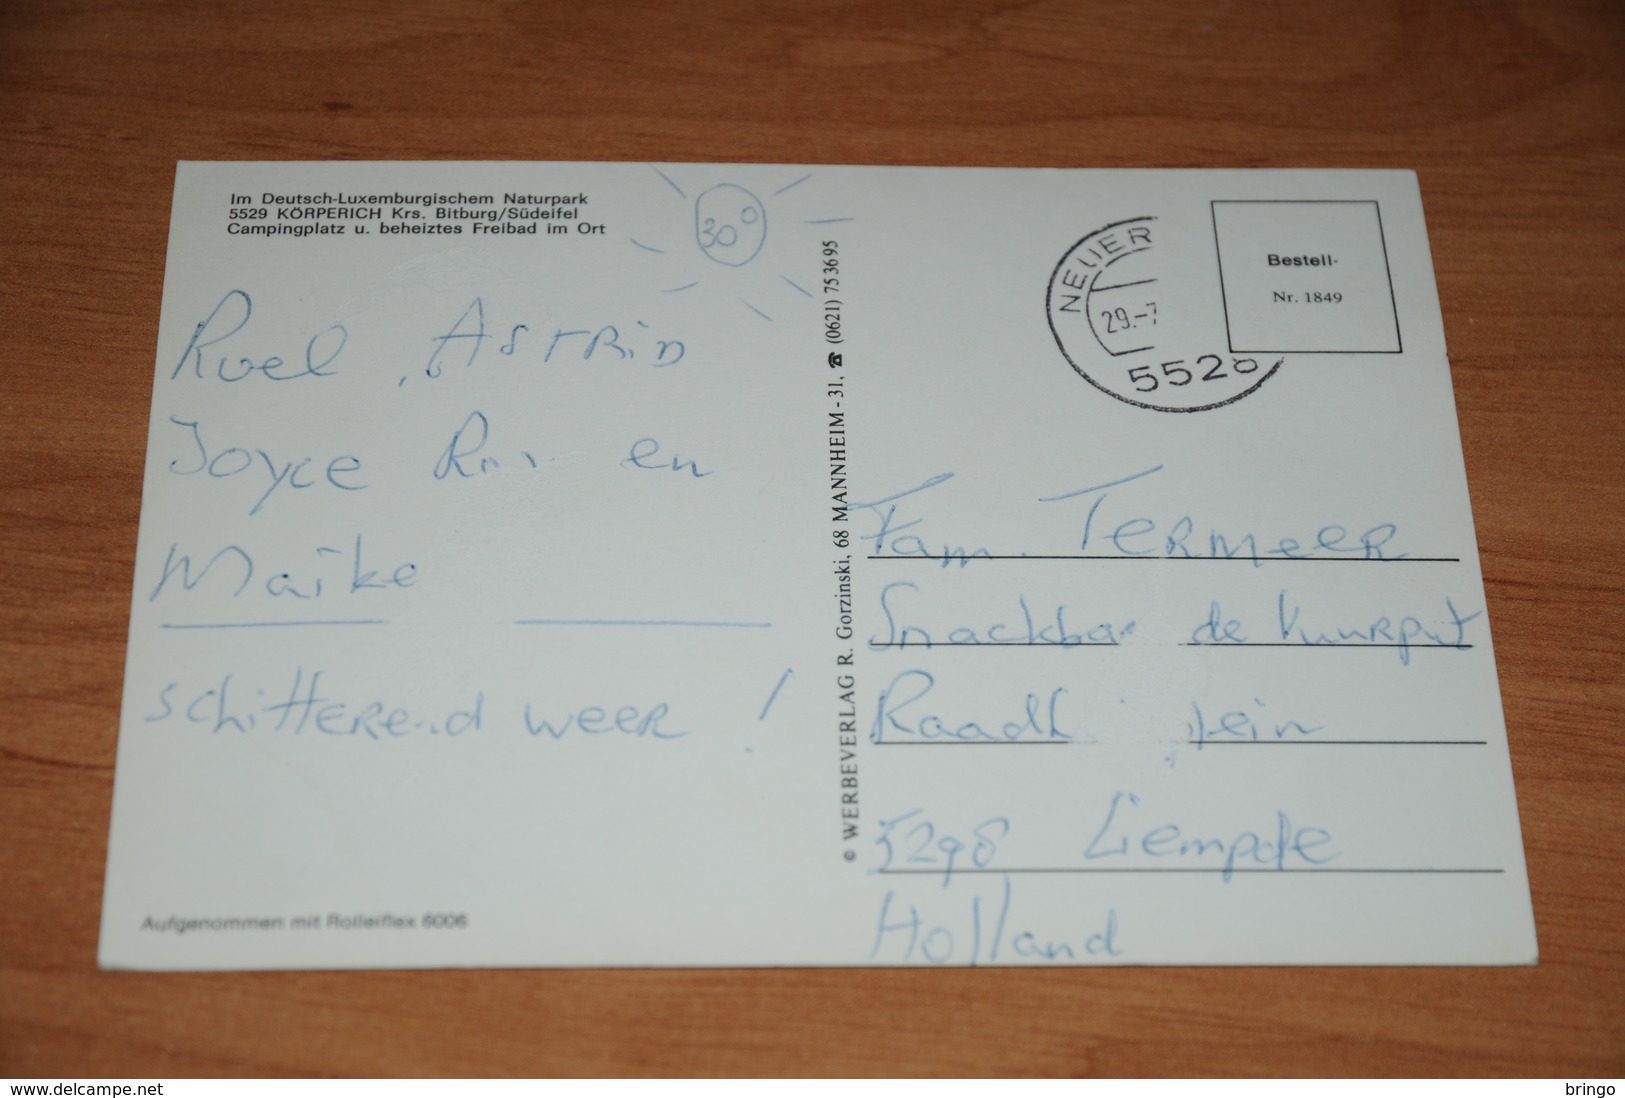 Im Deutsch-Luxemburgischem Naturpark
5529 KÖRPERICH Krs. Bitburg/Südeifel
Campingplatz u. beheiztes Freibad im Ort
30°
Roel, Astrid
Joyce en
Maike
schitterend weer!
Aufgenommen mit Rolleiflex 6006
© WERBEVERLAG R. Gorzinski, 68 MANNHEIM - 31, ☎ (0621) 753695
NEUER
29.-7
5528
Bestell-
Nr. 1849
Fam. Termeer
Snackbar de
5298 Liempde
Holland
www.delcampe.net
bringo